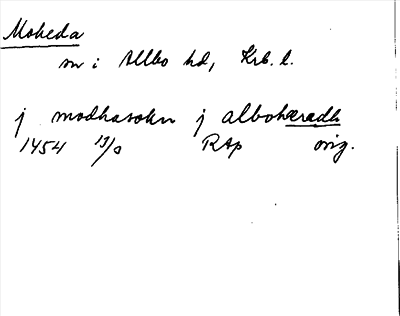 Moheda
sn i Allbo hd, Krb. l.
j modhasokn j albohæradh
1454 13/3 RAp orig.